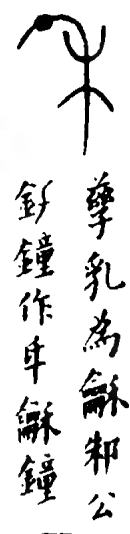 孳乳為龢邾公
釛鐘作氒龢鐘